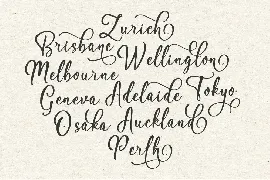 Zurich
Brisbane Wellington
Melbourne
Geneva Adelaide Tokyo
Osaka Auckland
Perth